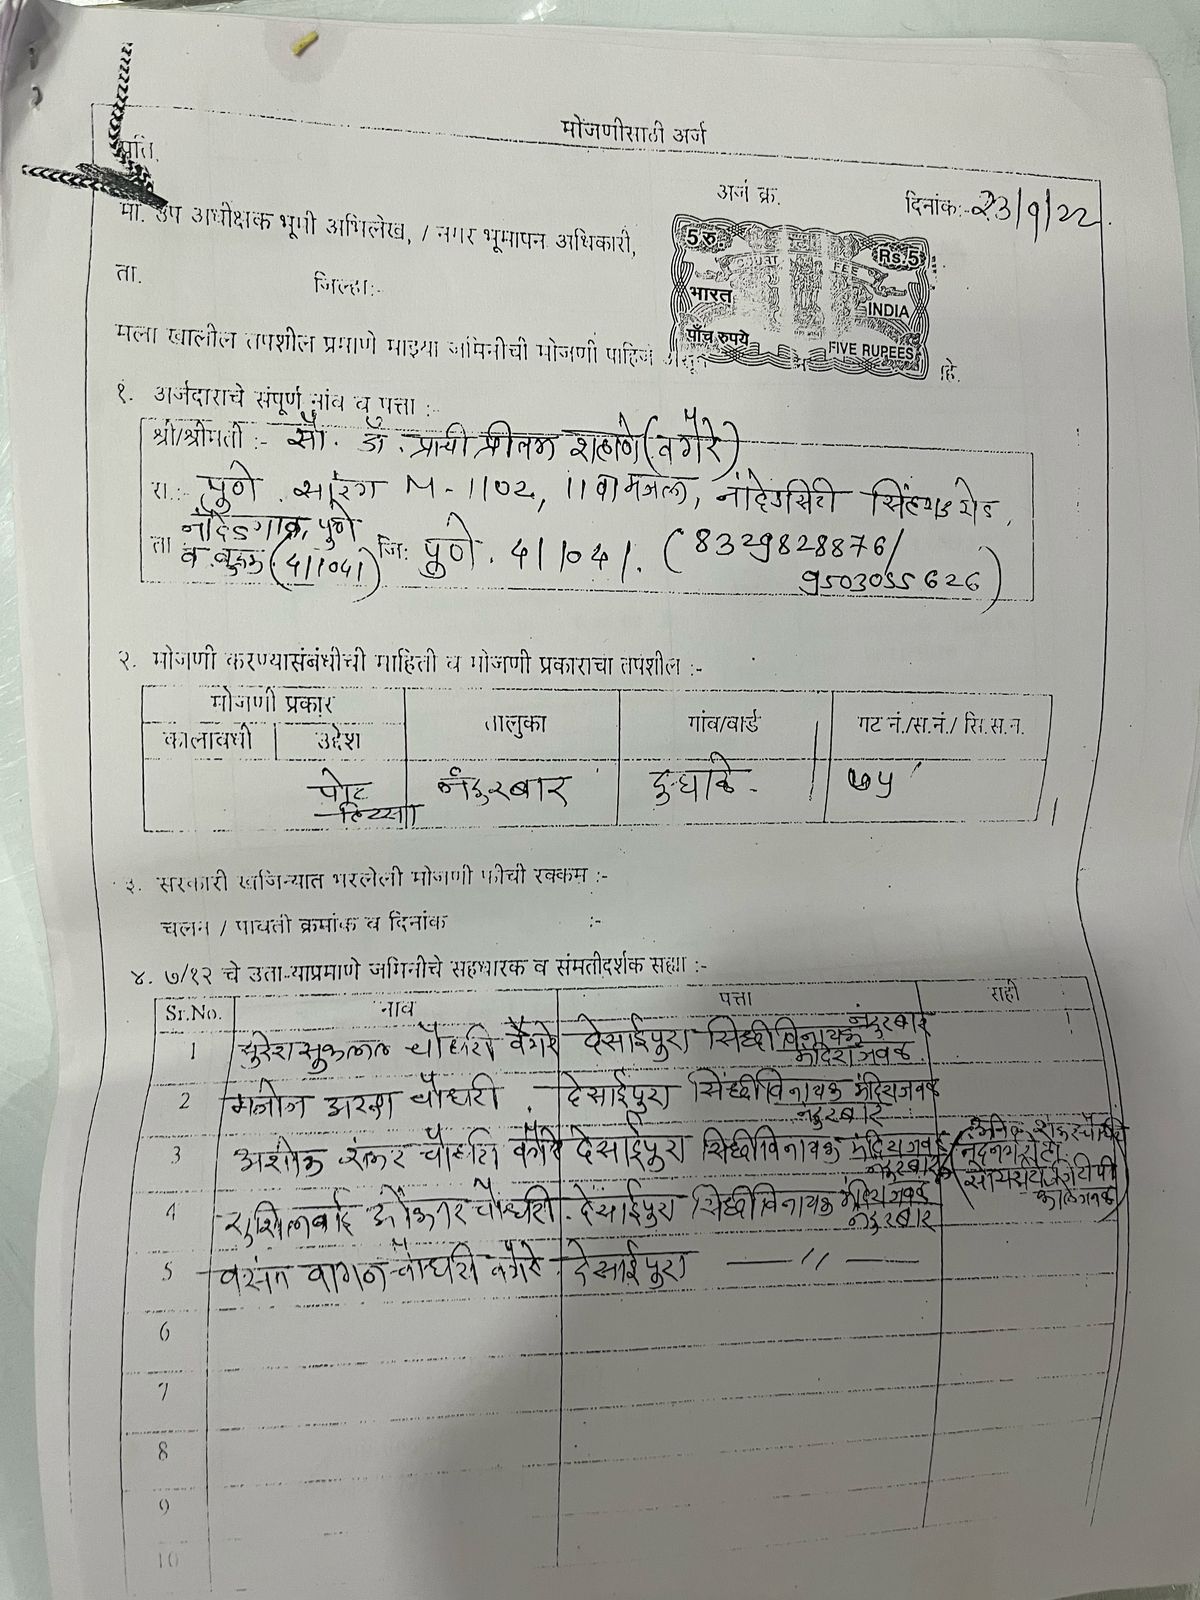 मोजणीसाठी अर्ज
प्रति.
अर्ज क्र. दिनांक:- 23/9/22.
मा. उप अधीक्षक भूमी अभिलेख, / नगर भूमापन अधिकारी,
5 रु Rs.5
COURT FEE
भारत INDIA
पाँच रुपये FIVE RUPEES
ता. जिल्हा:-
मला खालील तपशील प्रमाणे माझ्या जमिनीची मोजणी पाहिजे असून हे.
१. अर्जदाराचे संपूर्ण नांव व पत्ता :-
श्री/श्रीमती :- सौ. डॉ. प्राची प्रीतम (वगैरे)
रा.:- पुणे. सारंग M-1102, 11 वा मजला, नांदेडसिटी सिंहगड रोड,
नांदेडगाव, पुणे
ता व बुद्रुक (411041) जि: पुणे. 411041. (8329828876/
9503055626)
२. मोजणी करण्यासंबंधीची माहिती व मोजणी प्रकाराचा तपशील :-
मोजणी प्रकार तालुका गांव/वार्ड गट नं./स.नं./ सि.स.न.
कालावधी उद्देश
पोट हिस्सा नंदुरबार दुधाळे ७५
३. सरकारी खजिन्यात भरलेली मोजणी फीची रक्कम :-
चलन / पावती क्रमांक व दिनांक :-
४. ७/१२ चे उता-याप्रमाणे जमिनीचे सहधारक व संमतीदर्शक सह्या :-
Sr.No. नाव पत्ता सही
1 सुरेश चौधरी वगैरे देसाईपुरा सिद्धीविनायक मंदिराजवळ नंदुरबार
2 मनोज चौधरी. देसाईपुरा सिद्धीविनायक मंदिराजवळ नंदुरबार
3 अशोक शंकर चौधरी वगैरे देसाईपुरा सिद्धीविनायक मंदिराजवळ नंदुरबार
4 सुशिलाबाई ओंकार चौधरी. देसाईपुरा सिद्धीविनायक मंदिराजवळ नंदुरबार
5 वसंत वामन चौधरी वगैरे. देसाईपुरा —〃—
6
7
8
9
10